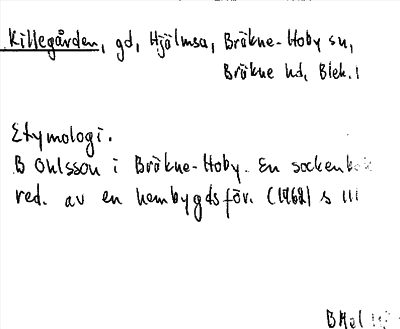 Killegården, gd, Hjälmsa, Bräkne-Hoby sn,
Bräkne hd, Blek.
Etymologi.
B Ohlsson i Bräkne-Hoby. En sockenbok
red. av en hembygdsför. (1962) s 111